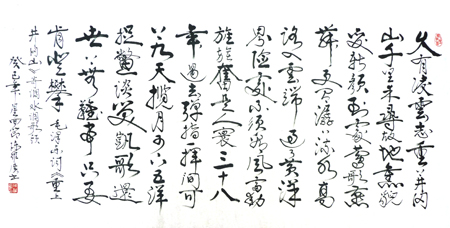 久有凌雲志重上井冈
山千里来尋故地舊貌
变新颜到處莺歌燕
舞更有潺潺流水高
路入雲端过了黄洋
界险處不須看风雷動
旌旗奮是人寰三十八
年過去弹指一揮间可
上九天揽月可下五洋
捉鳖谈笑凯歌還
世上無難事只要
肯登攀 毛泽东词重上
井冈山水调歌头
癸巳